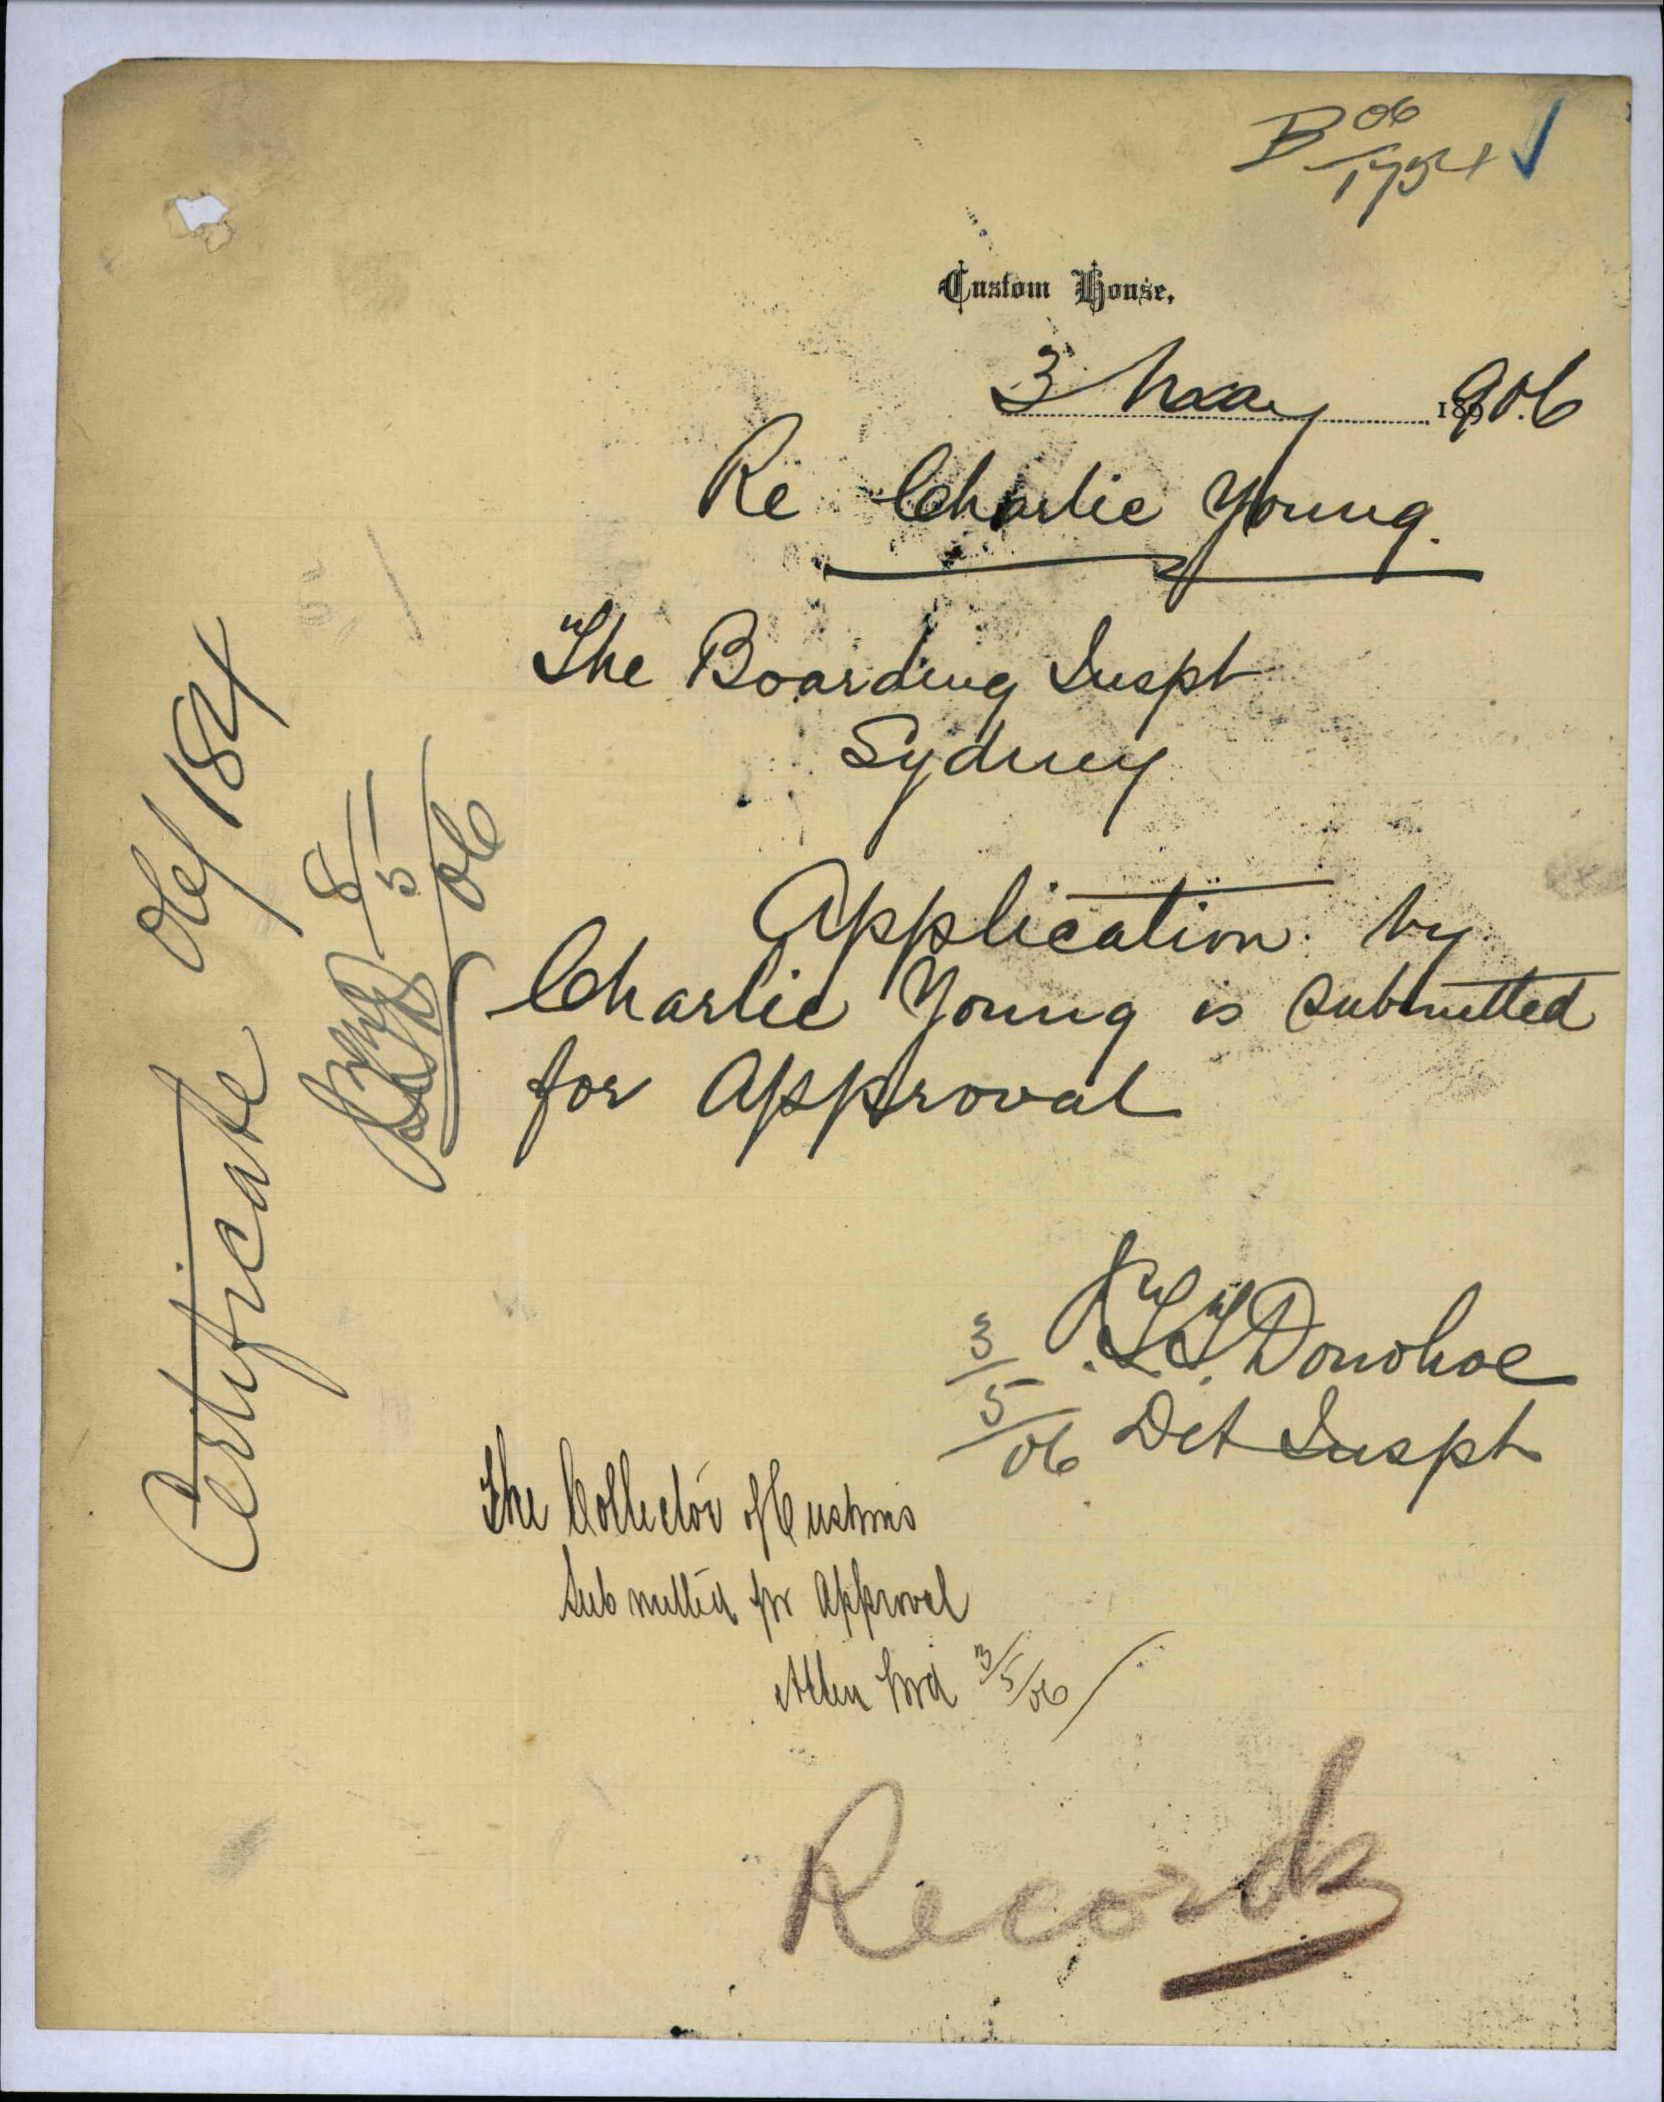 B 06/1754
Custom House,
3 May 1906
Re Charlie Young.
The Boarding Inspt
Sydney
Application by
Charlie Young is submitted
for approval
J.T.T. Donohoe
3/5/06 Det Inspt
The Collector of Customs
Submitted for approval
3/5/06
Records
Certificate 06/184
8/5/06